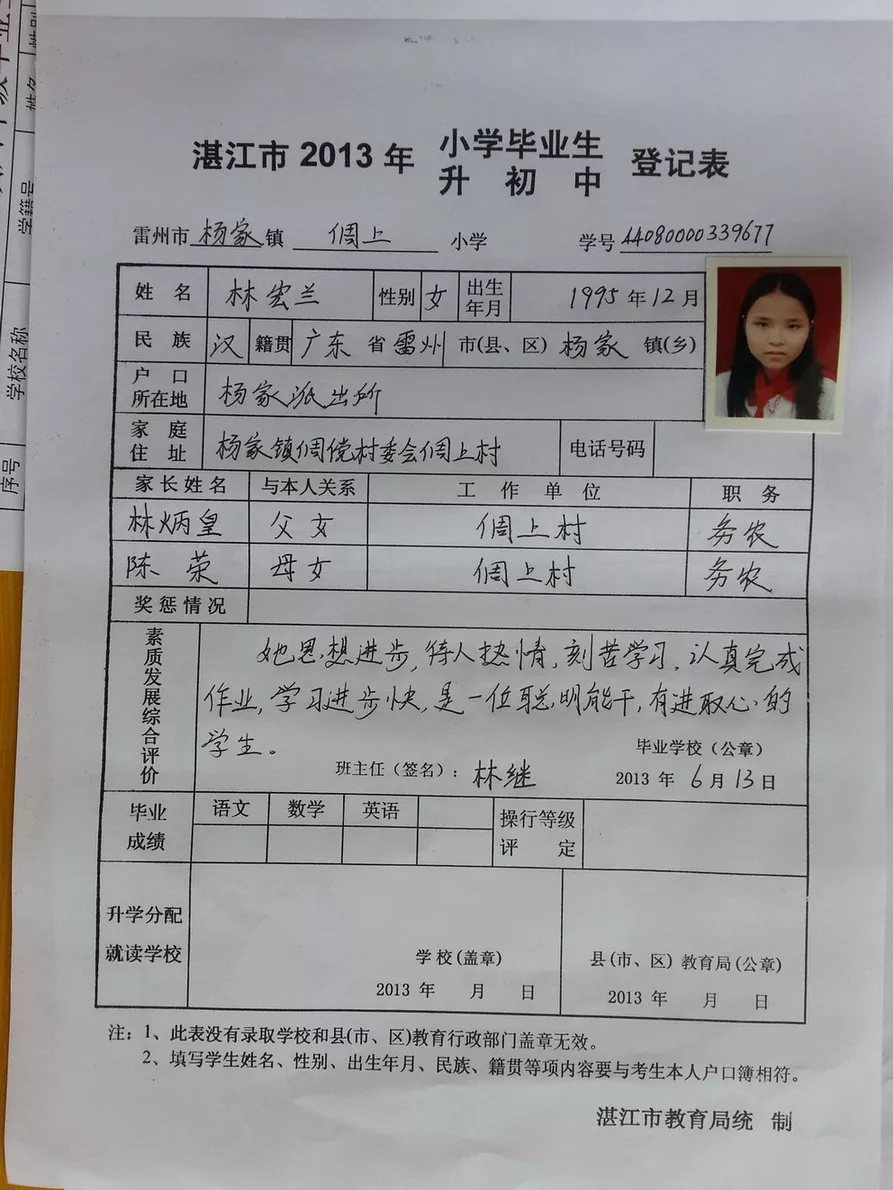 湛江市 2013 年 小学毕业生 登记表
升 初 中
雷州市 杨家 镇 倜上 小学 学号 44080000339677
姓 名 林宏兰 性别 女 出生年月 1995 年 12 月
民 族 汉 籍贯 广东 省 雷州 市(县、区) 杨家 镇(乡)
户 口 所在地 杨家派出所
家 庭 住 址 杨家镇倜傥村委会倜上村 电话号码
家长姓名 与本人关系 工 作 单 位 职 务
林炳皇 父女 倜上村 务农
陈 荣 母女 倜上村 务农
奖惩情况
素质发展综合评价
她思想进步,待人热情,刻苦学习,认真完成
作业,学习进步快,是一位聪明能干,有进取心的
学生。
毕业学校(公章)
班主任(签名): 林继
2013 年 6 月 13 日
毕业成绩 语文 数学 英语 操行等级评 定
升学分配
就读学校
学校(盖章) 县(市、区)教育局(公章)
2013 年 月 日 2013 年 月 日
注:1、此表没有录取学校和县(市、区)教育行政部门盖章无效。
2、填写学生姓名、性别、出生年月、民族、籍贯等项内容要与考生本人户口簿相符。
湛江市教育局统 制
序号
学校名称
学籍号
姓名
性别